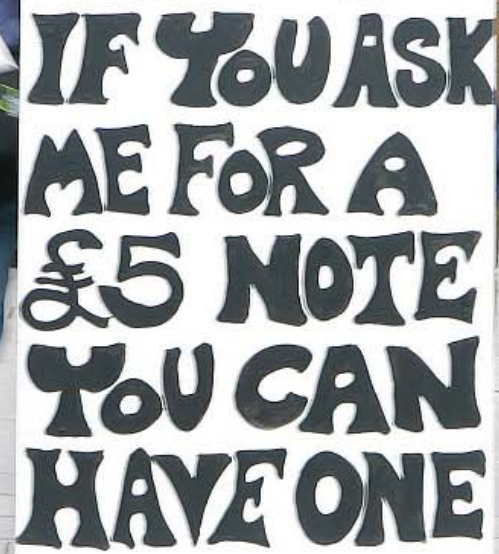 IF YOU ASK
ME FOR A
£5 NOTE
YOU CAN
HAVE ONE